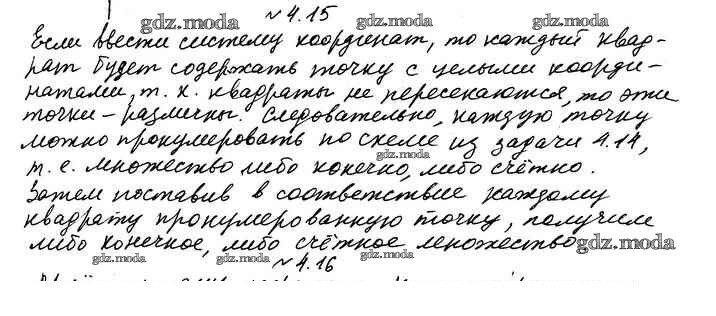 № 4.15
gdz.moda gdz.moda gdz.moda
Если ввести систему координат, то каждый квад-
рат будет содержать точку с целыми коорди-
натами, т. к. квадраты не пересекаются, то эти
точки – различны. Следовательно, каждую точку
можно пронумеровать по схеме из задачи 4.14,
gdz.moda
т. е. множество либо конечно, либо счётно.
Затем поставив в соответствие каждому
квадрату пронумерованную точку, получим
либо конечное, либо счётное множество
gdz.moda
gdz.moda gdz.moda gdz.moda
№ 4.16